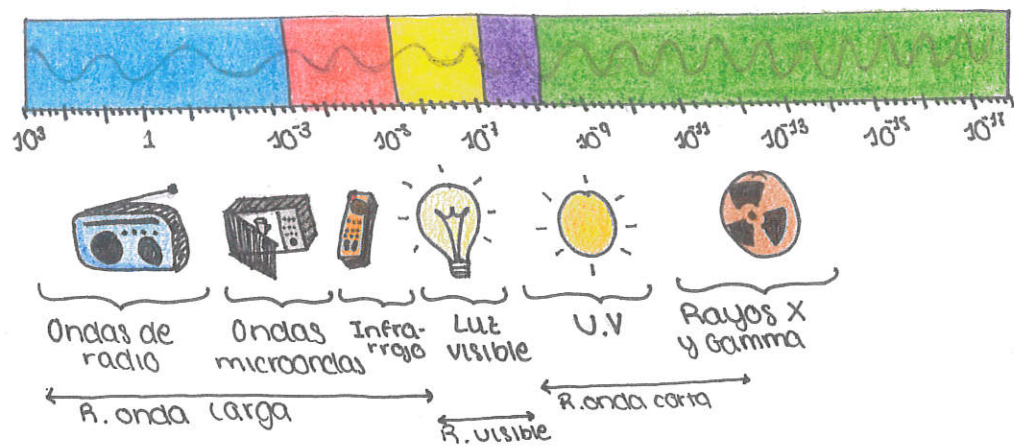 10³ 1 10⁻³ 10⁻⁵ 10⁻⁷ 10⁻⁹ 10⁻¹¹ 10⁻¹³ 10⁻¹⁵ 10⁻¹⁷
Ondas de
radio
Ondas
microondas
Infra-
rrojo
Luz
visible
U.V
Rayos X
y Gamma
R. onda larga
R. visible
R. onda corta